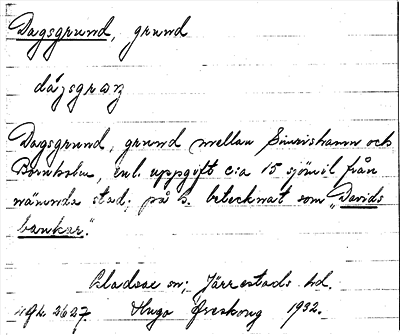 Dagsgrund, grund
dágsgraŋ
Dagsgrund, grund mellan Simrishamn och
Bornholm, enl. uppgift c:a 15 sjömil från
nämnda stad; på s. betecknat som "Davids
bankar."
Bladsax sn; Järrestads hd.
2627. Hugo Areskoug 1932.